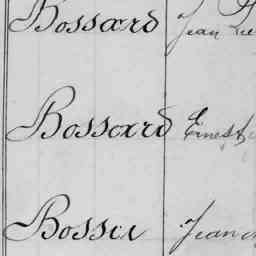 Bossard Jean
Bossard Ernest
Bossu Jean